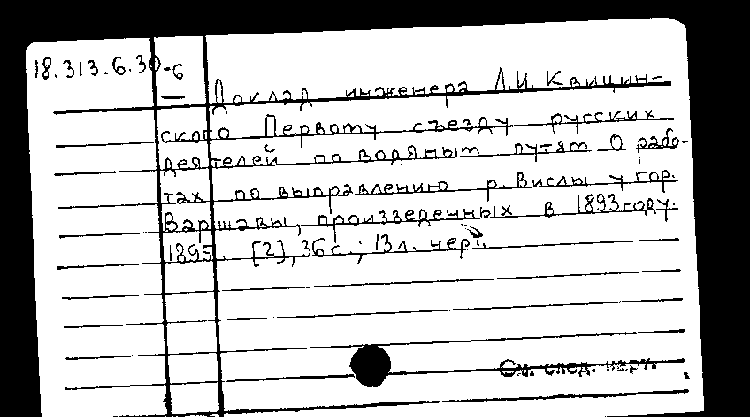 18.313.6.30-б
Доклад инженера Л.И. Квицин-
ского Первому съезду русских
деятелей по водяным путям О рабо-
тах по выправлению р. Вислы у гор.
Варшавы, произведенных в 1893 году.
1895. [2], 36 с.; 13 л. черт.
См. след. карт.